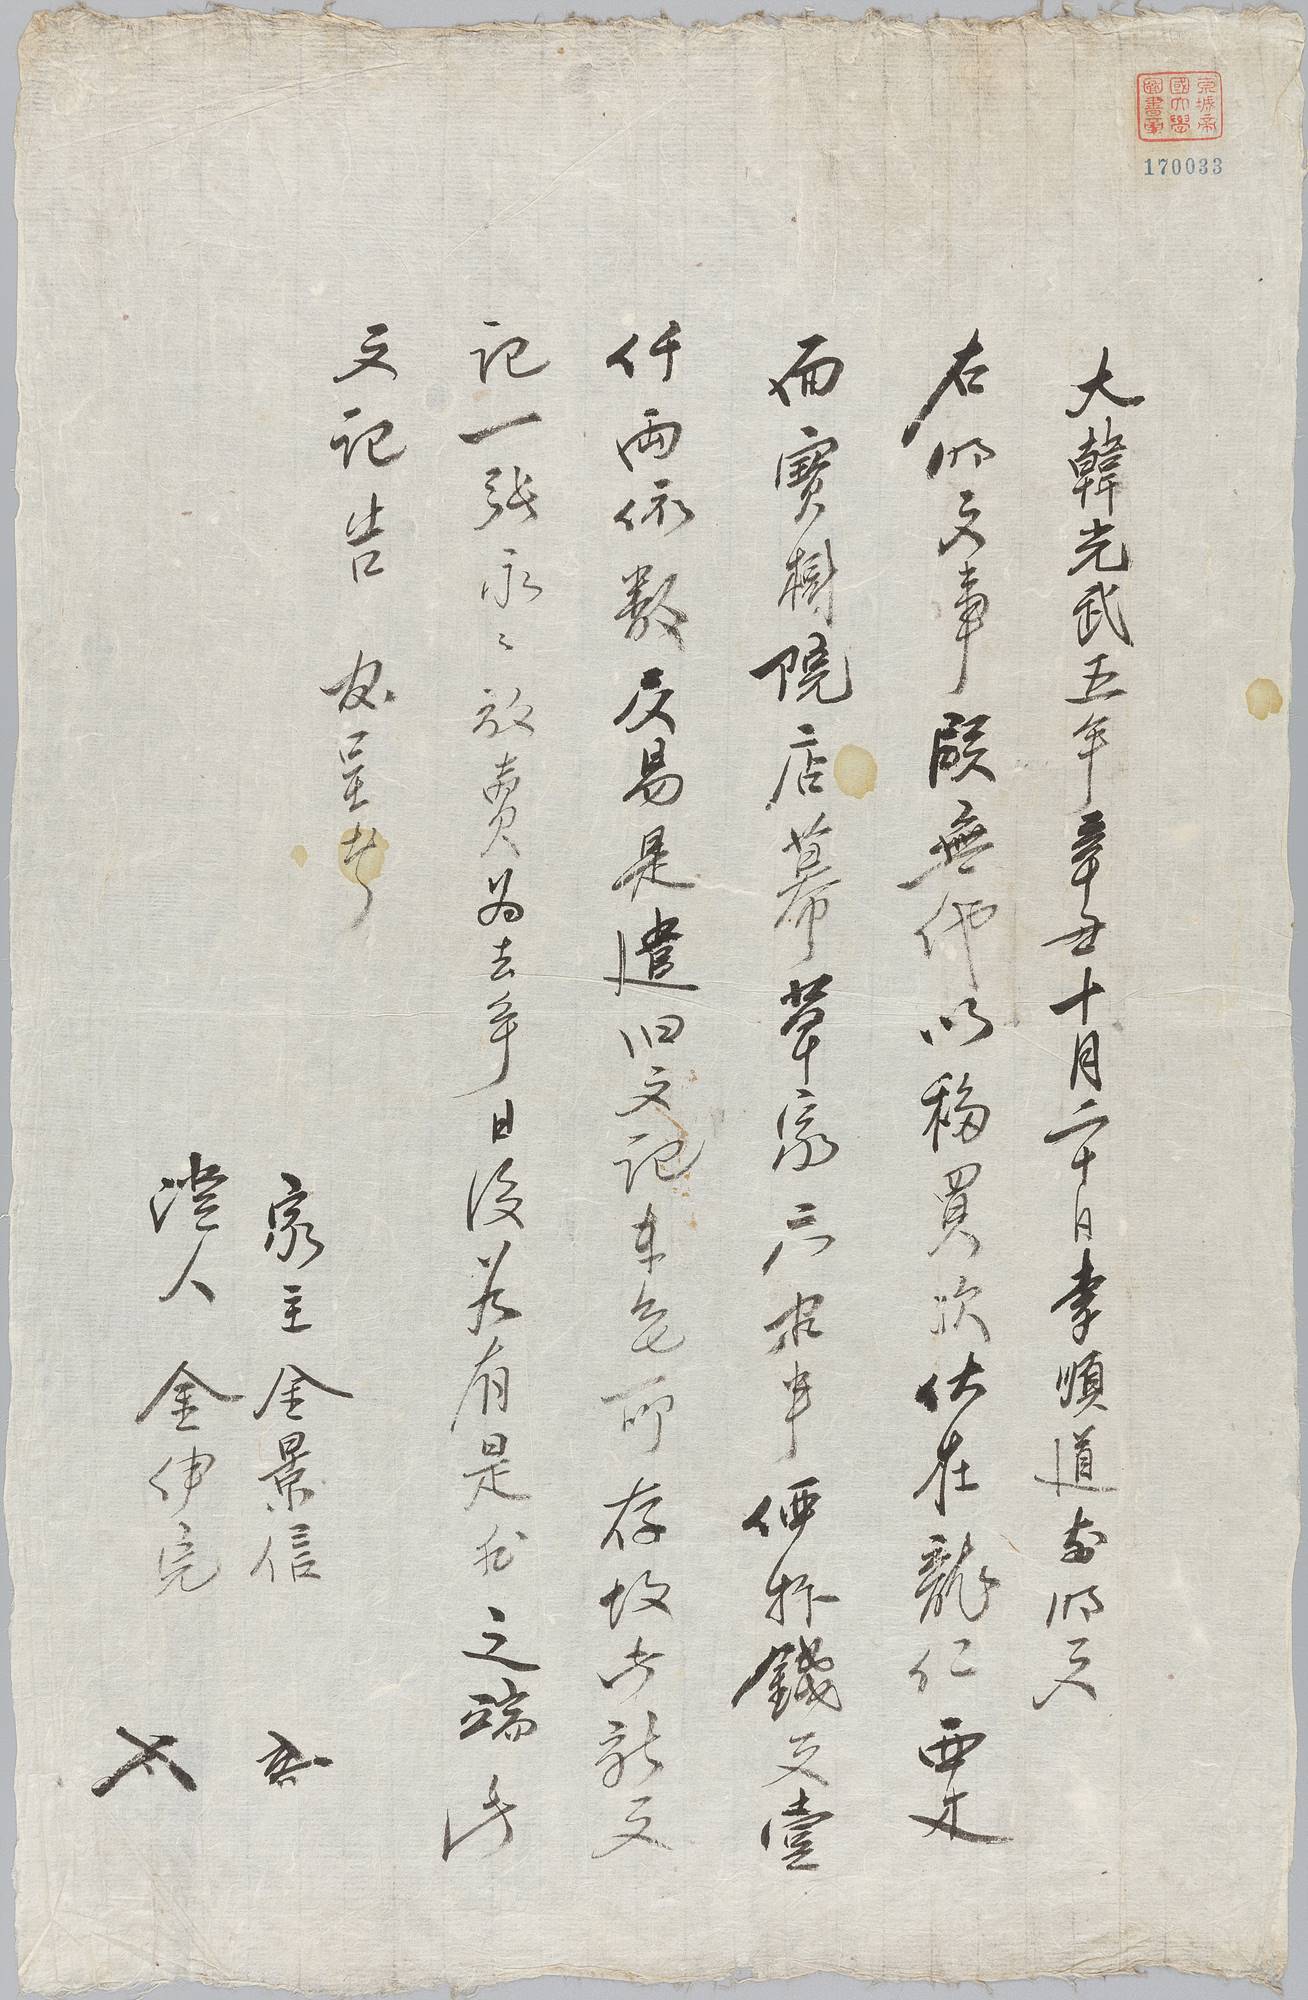 京城帝
國大學
圖書章
170033
大韓光武五年辛丑十月二十日李順道前明文
右明文事段無他以移買次伏在龍仁西村
面寶樹院店幕草家六間半価折錢文壹
仟両依数交易是遣旧文記未毛所存故以新文
記一張永々放賣為去乎日後若有是非之端以此
文記告官呈卞
家主金景信
證人 金伊完